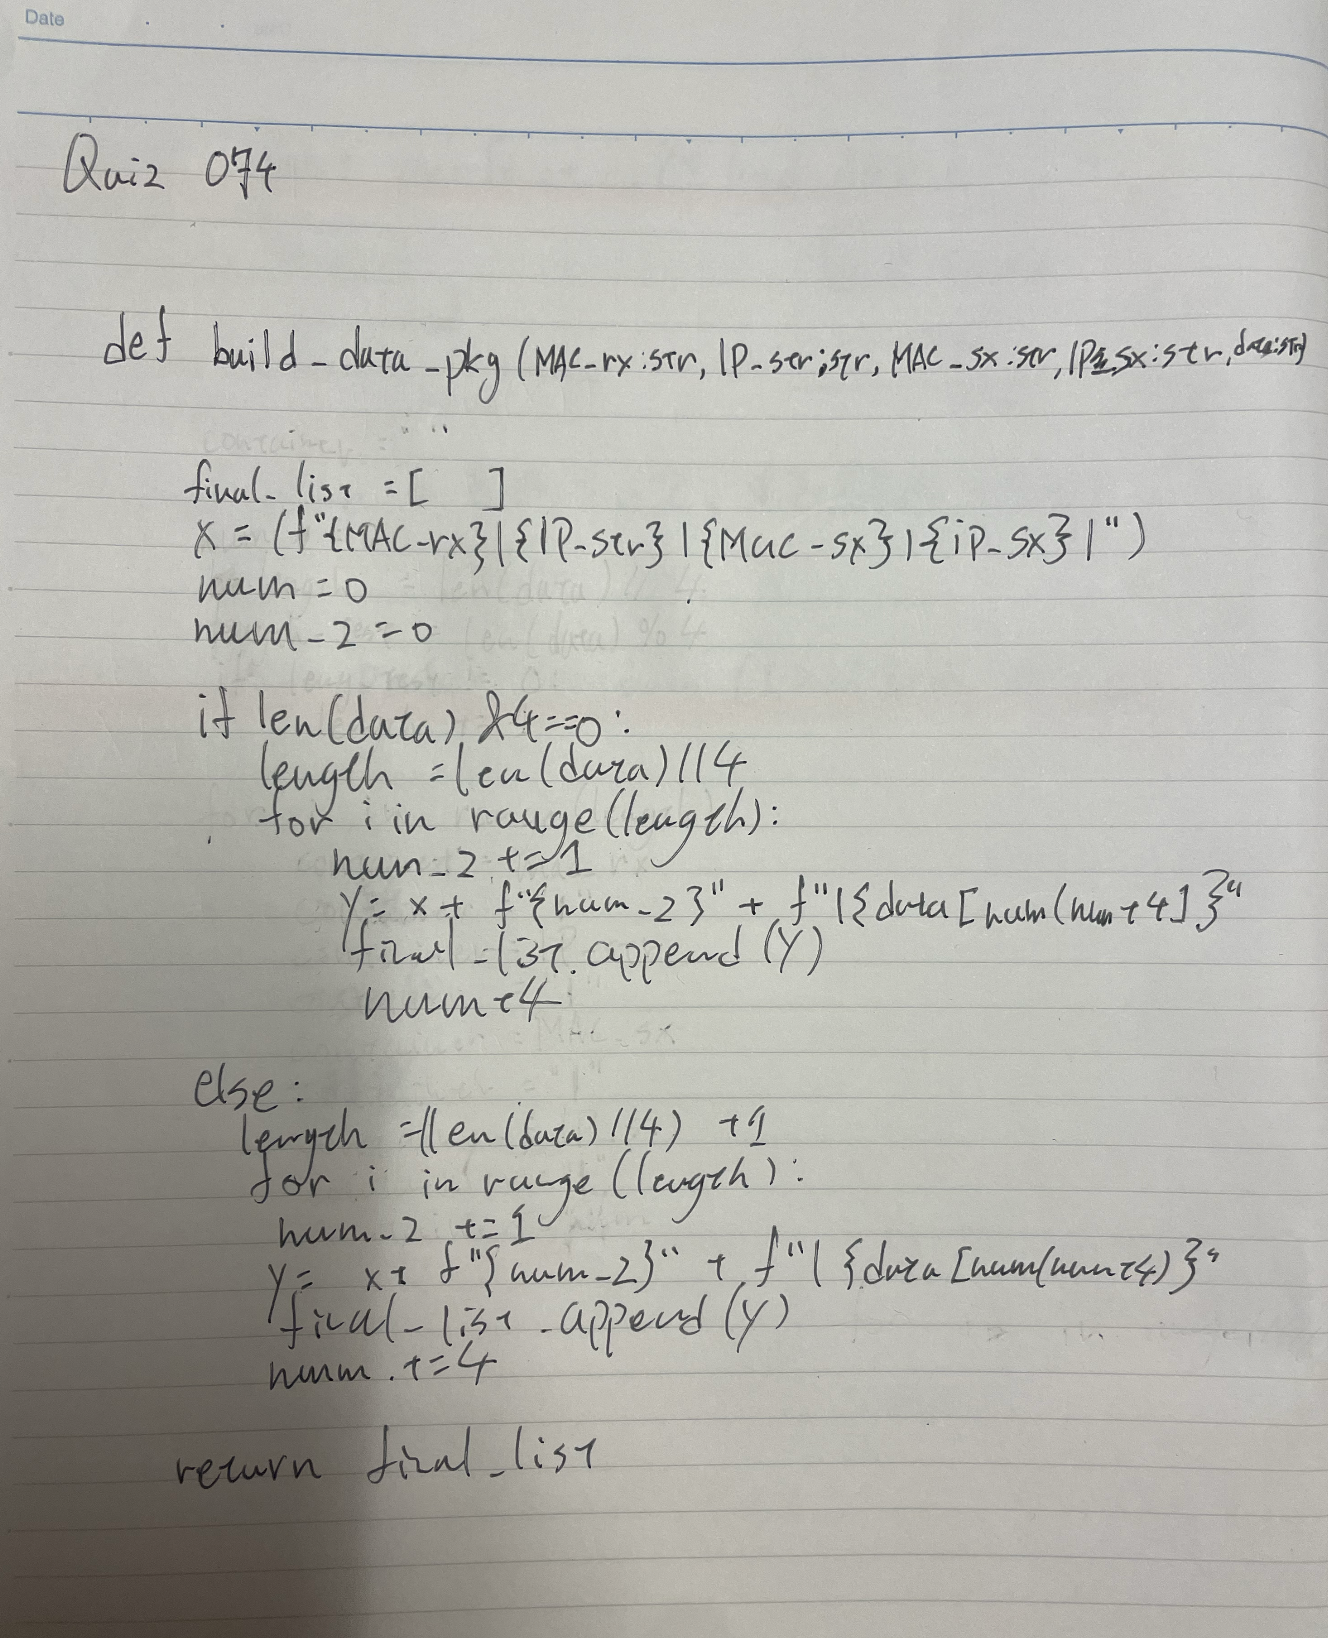 Date
Quiz 074
def build_data_pkg (MAC_rx:str, IP_str:str, MAC_sx:str, IP_sx:str, data:str)
final_list = [ ]
x = (f"{MAC_rx}|{IP_str}|{Mac_sx}|{ip_sx}|")
num = 0
num_2 = 0
if len(data) %4==0:
length = len(data)//4
for i in range(length):
num_2 += 1
y = x + f"{num_2}" + f"|{data[num(num+4]}"
final_list.append(y)
num+4
else:
length =(len(data)//4) +1
for i in range(length):
num_2 += 1
y = x + f"{num_2}" + f"|{data[num(num+4)}"
final_list.append(y)
num += 4
return final_list